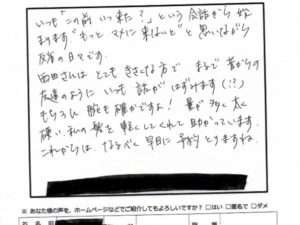 いつも“この前いつ来た?”という会話から始
まります“もっとマメに来ないと”と思いながら
反省の日々です。
西田さんはとてもきさくな方で まるで昔からの
友達のようにいつも話がはずみます(!?)
もちろん腕も確かですよ! 量が多く太く
硬い、私の髪を軽くしてくれて助かっています。
これからは、なるべく早目に予約とりますね。
※ あなた様の声を、ホームページなどでご紹介してもよろしいですか? □はい □匿名で □ダメ